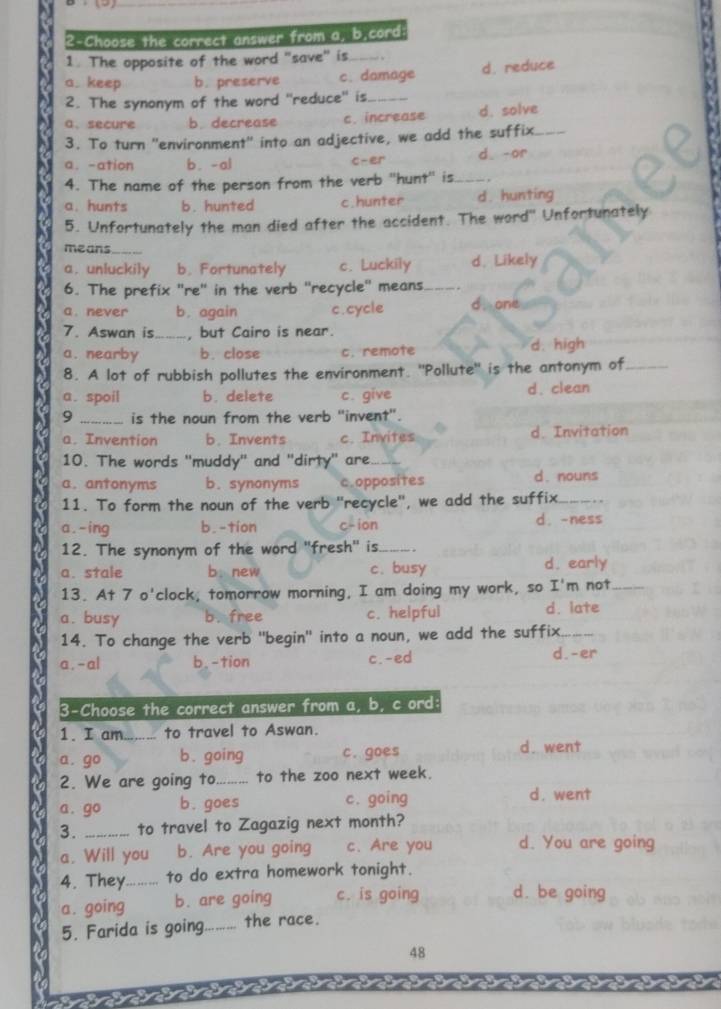 2-Choose the correct answer from a, b,cord:
1. The opposite of the word "save" is........
a. keep b. preserve c. damage d. reduce
2. The synonym of the word "reduce" is........
a. secure b. decrease c. increase d. solve
3. To turn "environment" into an adjective, we add the suffix........
a. -ation b. -al c-er d. -or
4. The name of the person from the verb "hunt" is........
a. hunts b. hunted c.hunter d. hunting
5. Unfortunately the man died after the accident. The word" Unfortunately
means........
a. unluckily b. Fortunately c. Luckily d. Likely
6. The prefix "re" in the verb "recycle" means........
a. never b. again c.cycle d. one
7. Aswan is........, but Cairo is near.
a. nearby b. close c. remote d. high
8. A lot of rubbish pollutes the environment. "Pollute" is the antonym of........
a. spoil b. delete c. give d. clean
9 ........... is the noun from the verb "invent".
a. Invention b. Invents c. Invites d. Invitation
10. The words "muddy" and "dirty" are........
a. antonyms b. synonyms c.opposites d. nouns
11. To form the noun of the verb "recycle", we add the suffix..........
a.-ing b.-tion c-ion d. -ness
12. The synonym of the word "fresh" is.........
a. stale b. new c. busy d. early
13. At 7 o'clock, tomorrow morning, I am doing my work, so I'm not........
a. busy b. free c. helpful d. late
14. To change the verb "begin" into a noun, we add the suffix........
a.-al b.-tion c.-ed d.-er
3-Choose the correct answer from a, b, c ord:
1. I am........ to travel to Aswan.
a. go b. going c. goes d. went
2. We are going to........ to the zoo next week.
a. go b. goes c. going d. went
3. ........... to travel to Zagazig next month?
a. Will you b. Are you going c. Are you d. You are going
4. They........ to do extra homework tonight.
a. going b. are going c. is going d. be going
5. Farida is going........ the race.
48
Mr. Wael A. Elsamee